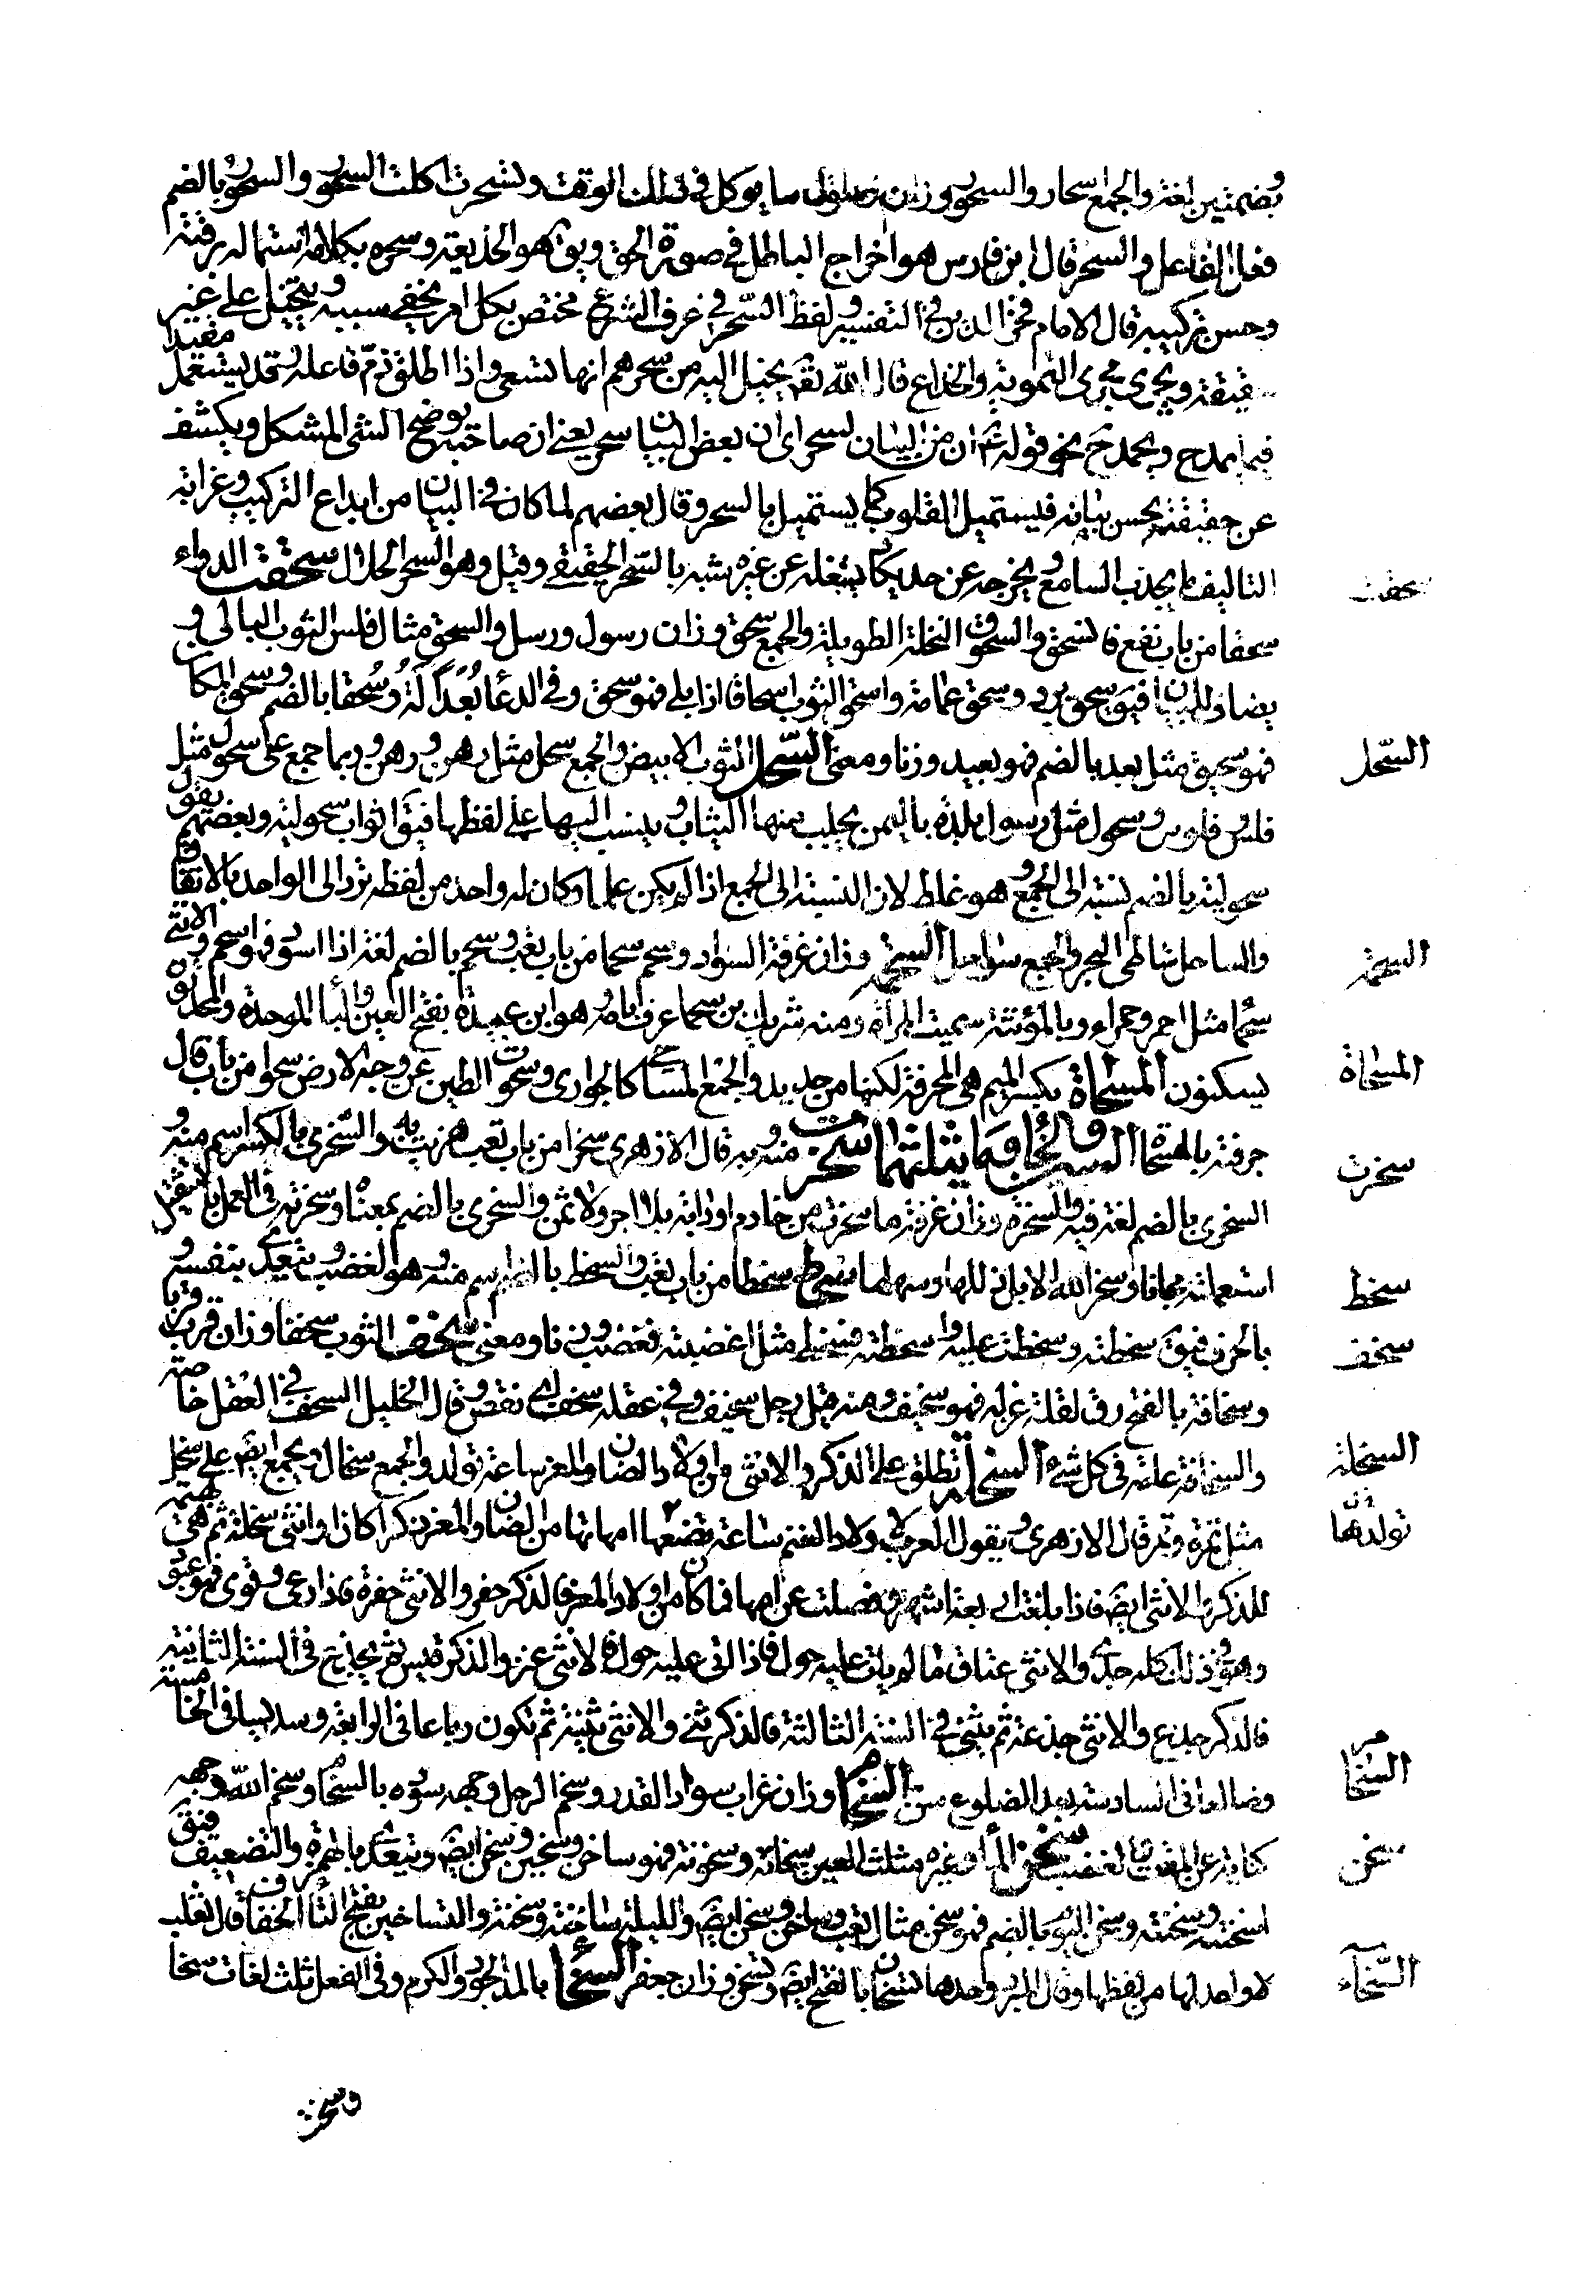 وبضمتين لغة والجمع اسحار والسحور وزان رسول ما يوكل في ذلك الوقت وتسحرت اكلت السحور والسحور بالضم
فعل الفاعل والسحر قال ابن فارس هو اخراج الباطل في صورة الحق ويق هو الخديعة وسحره بكلامه استماله برقته
وحسن تركيبه قال الامام فخر الدين في التفسير ولفظ السّحر في عرف الشرع مختص بكل امر يخفى سببه ويتخيل على غير
حقيقته ويجرى مجرى التمويه والخداع قال الله تع يخيل اليه من سحرهم انها تسعى واذا اطلق ذمّ فاعله وقد يستعمل مقيدا
فيما يمدح ويحمد نحو قوله ان من البيان لسحرا اى ان بعض البيان سحر يعنى ان صاحبه يوضح الشئ المشكل ويكشف
عن حقيقته بحسن بيانه فيستميل القلوب كما يستميل بالسحر وقال بعضهم لما كان في البيان من ابداع التركيب وغرابة
التاليف ما يجذب السامع ويخرجه عن حد يكاد يشغله عن غيره شبه بالسّحر الحقيقى وقيل وهو السحر الحلال سحقت الدواء
سحقت
سحقا من باب نفع فانسحق والسحوق النخلة الطويلة والجمع سحق وزان رسول ورسل والسحق مثال فلس الثوب البالى و
يضاف للبيان فيق سحق برد وسحق عمامة واسحق الثوب اسحاقا اذا بلى فهو سحق وفي الدعا بُعداً لَهُ وسُحقا بالضم وسحق المكان
فهو سحيق مثل بعد بالضم فهو بعيد وزنا ومعنى السّحل الثوب الابيض والجمع سحل مثل رهن ورهن وربما جمع على سحول مثل
السّحل
فلس وفلوس وسحول مثل رسول بلدة باليمن يجلب منها الثياب وينسب اليها على لفظها فيق اثواب سحولية وبعضهم يقول
سحولية بالضم نسبة الى الجمع وهو غلط لان النسبة الى الجمع اذا لم يكن علما وكان له واحد من لفظه ترد الى الواحد بالاتفاق
والساحل شاطئ البحر والجمع سواحل السحمة وزان غرفة السواد وسحم سحما من باب تعب وسحم بالضم لغة اذا اسود فهو اسحم والانثى
السحمة
سحما مثل احمر وحمراء وبالمؤنثة سميت المراة ومنه شريك بن سحما عرف بامه وهو ابن عبدة بفتح العين والبا الموحدة والمحدثون
يسكنون المسحاة بكسر الميم هى المجرفة لكنها من حديد والجمع المساحى كالجوارى وسحوت الطين عن وجه الارض سحوا من باب قال
المسحاة
جرفته بالمسحاة السين والخا وما يثلثهما سخرت منه وبه قال الازهرى سخرا من باب تعب هزيت به والسّخرى بالكسر اسم منه و
سخرت
السخرى بالضم لغة فيه والسخرة وزان غرفة ما سخرت من خادم او دابة بلا اجر ولا ثمن والسخرى بالضم بمعناه وسخرته في العمل بالتثقيل
استعملته مجانا وسخر الله الابل ذللها وسهلها سخط سخطا من باب تعب والسخط بالضم اسم منه وهو الغضب ويتعدى بنفسه و
سخط
بالحرف فيق سخطته وسخطت عليه واسخطته فسخط مثل اغضبته فغضب وزنا ومعنى سخف الثوب سخفا وزان قرب قربا
سخف
وسخافة بالفتح رق لقلة غزله فهو سخيف ومنه قيل رجل سخيف وفي عقله سخف اى نقص وقال الخليل السخف في العقل خاصة
والسخافة عامة في كل شئ السخلة تطلق على الذكر والانثى من اولاد الضان والمعز ساعة تولد والجمع سخال ويجمع ايض على سخل
السخلة
مثل تمرة وتمر قال الازهرى ويقول العرب لاولاد الغنم ساعة تضعها امهاتها من الضان والمعز ذكرا كان او انثى سخلة ثم هى بهيمة
تولدها
للذكر والانثى ايض فاذا بلغت اربعة اشهر وفصلت عن امها فما كان من اولاد المعز فالذكر جفر والانثى جفرة فاذا رعى وقوى فهو عتود
وهو في ذلك كله جدى والانثى عناق ما لم يات عليه حول فاذا اتى عليه حول فالانثى عنز والذكر تيس ثم يجذع في السنة الثانية
فالذكر جذع والانثى جذعة ثم يثنى في السنة الثالثة فالذكر ثنى والانثى ثنية ثم تكون رباعا في الرابعة وسديسا في الخامسة
وضالعا في السادسة وليس بعد الضلوع سن السخام وزان غراب سواد القدر وسخم الرجل وجهه سوده بالسخام وسخم الله وجهه
السخام
كناية عن المقت والغضب سخن الماء وغيره مثلث العين سخانة وسخونة فهو ساخن وسخين وسخن ايض ويتعدى بالهمزة والتضعيف فيق
سخن
اسخنته وسخنته وسخن اليوم بالضم فهو سخن مثال تعب وساخن وسخن ايض والليلة ساخنة وسخنة والتساخين بفتح التا الخفاف قال ثعلب
لا واحد لها من لفظها وقال المبرد واحدها تسخان بالفتح ايض وتسخن وزان جعفر السخاء بالمد الجود والكرم وفي الفعل ثلث لغات سخا
السّخاء
وسخت